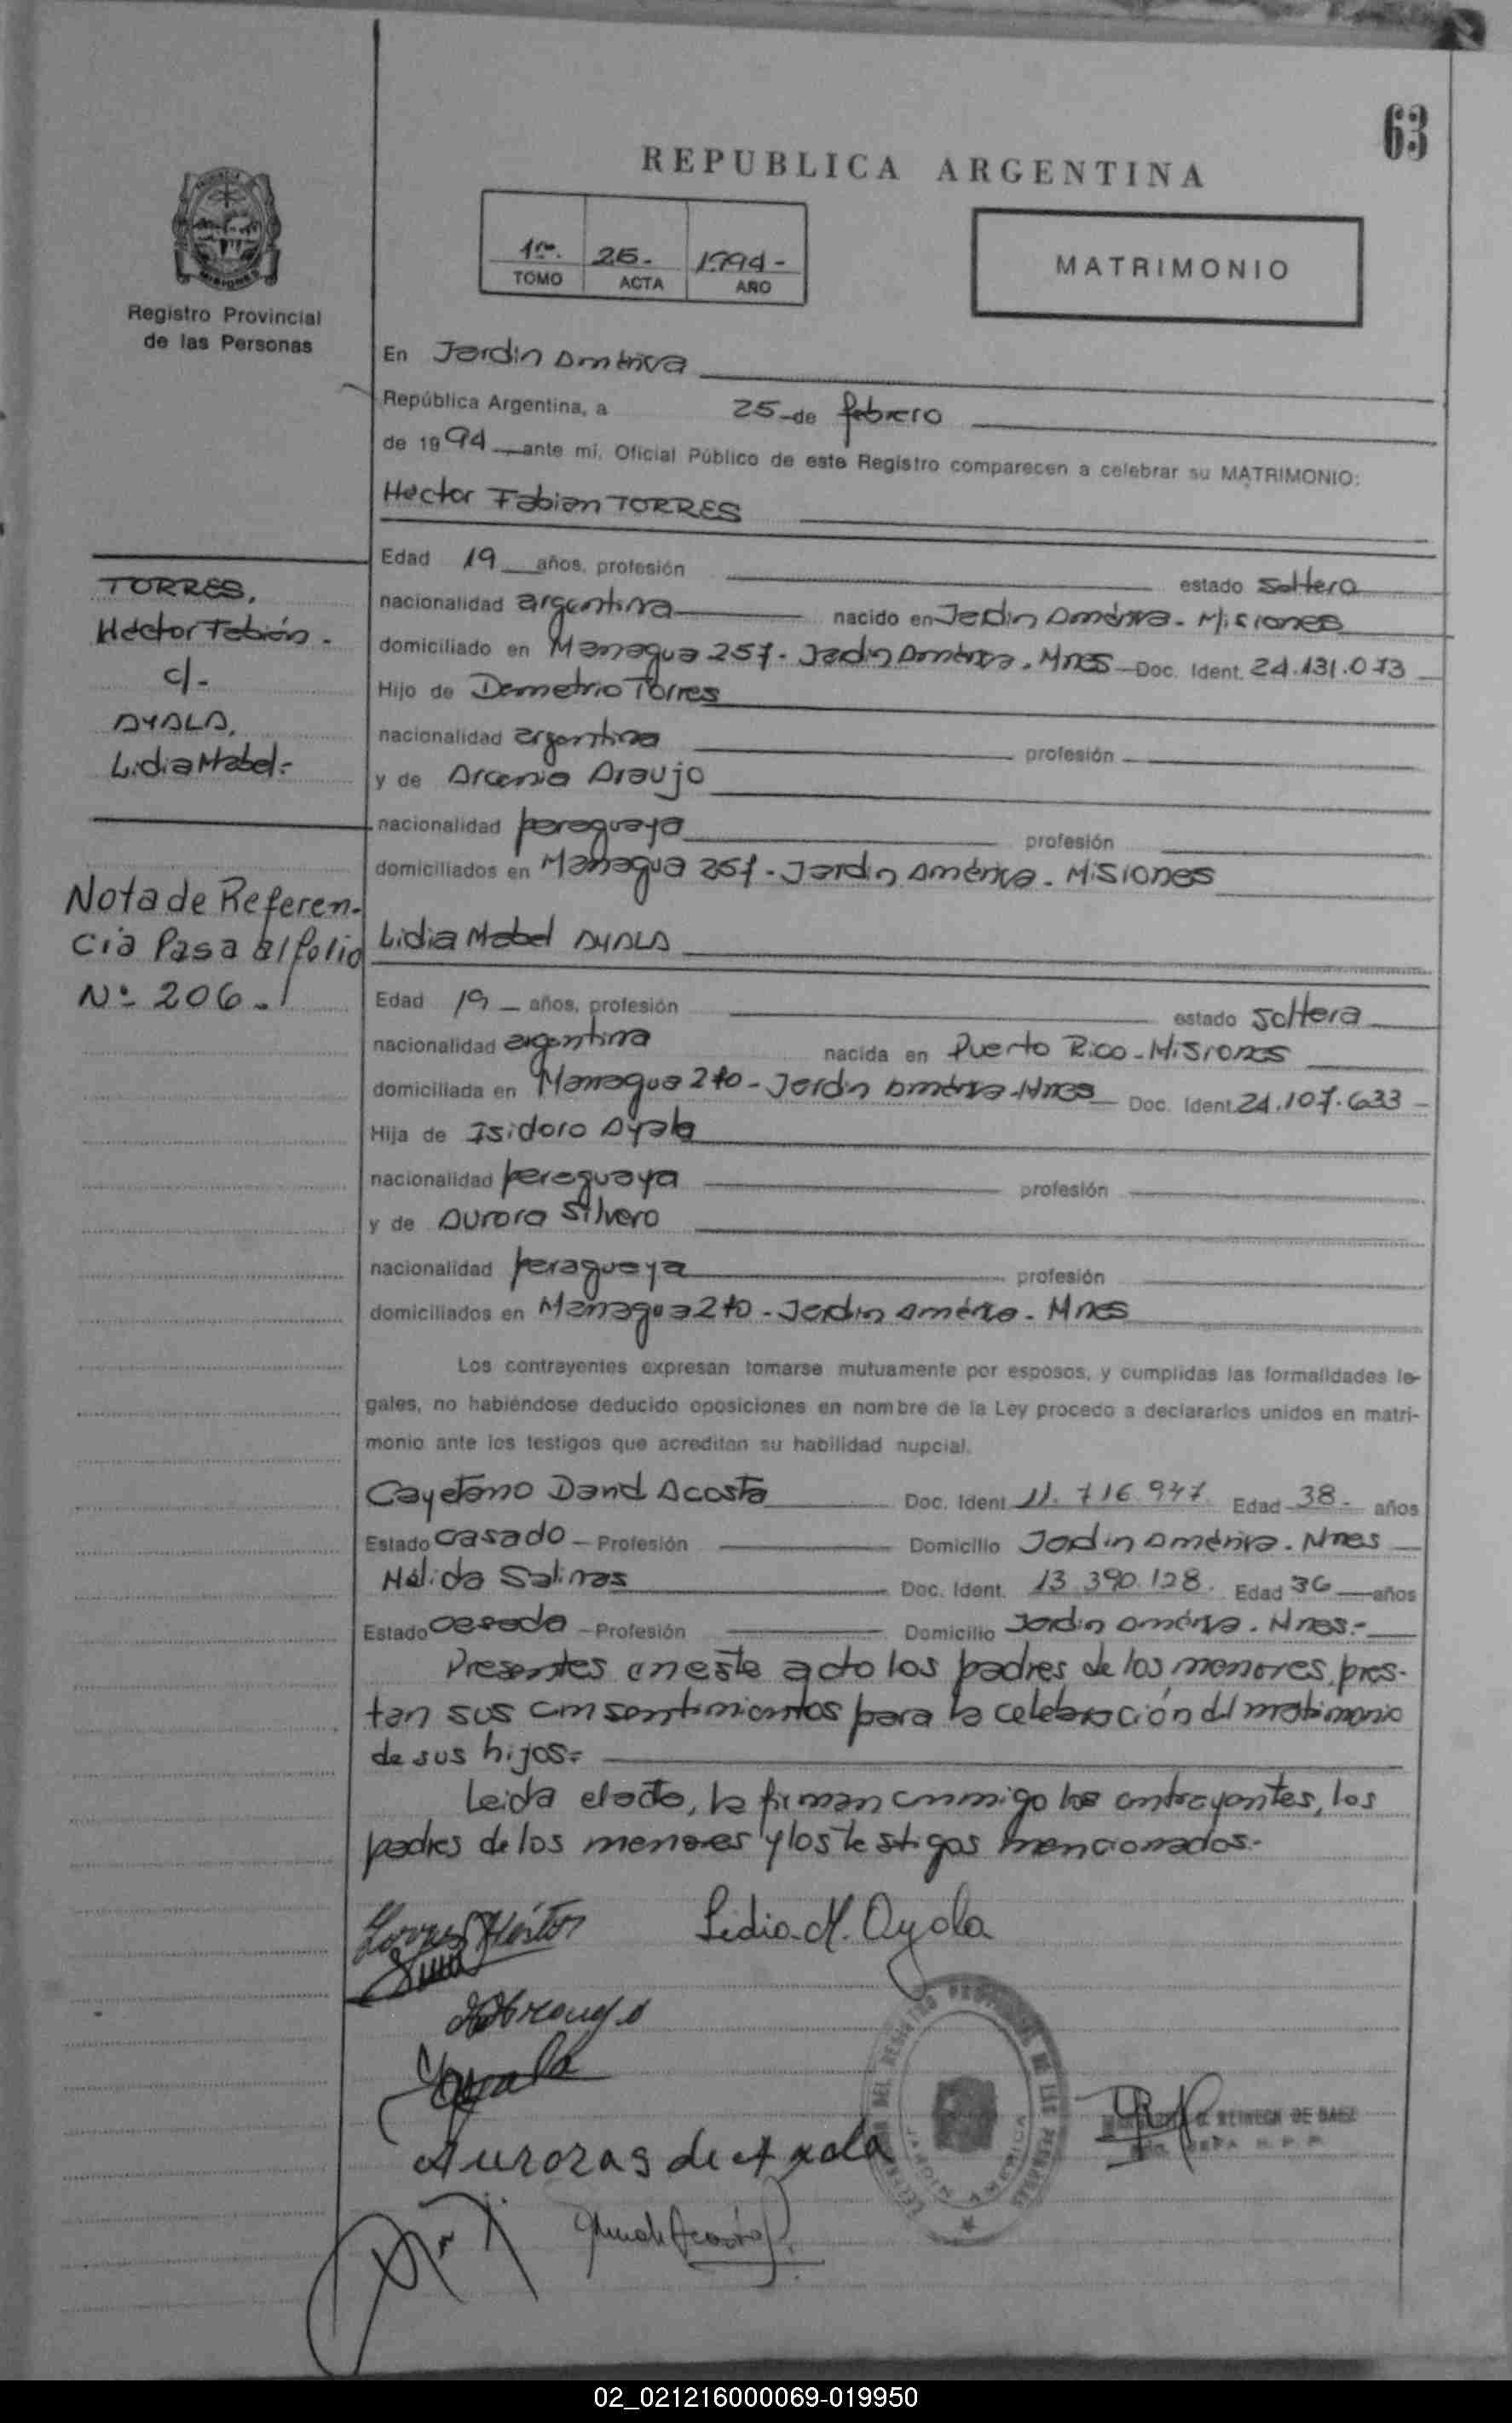 63
REPUBLICA ARGENTINA
1ro. 25.- 1994-
TOMO ACTA AÑO
MATRIMONIO
Registro Provincial
de las Personas
En Jardin América
República Argentina, a 25-de febrero
de 1994 ante mí, Oficial Público de este Registro comparecen a celebrar su MATRIMONIO:
Hector Fabian TORRES
TORRES,
Héctor Fabián.-
c/-
AYALA,
Lidia Mabel:-
Nota de Referen-
cia Pasa al folio
Nº 206.-
Edad 19 años, profesión estado soltero
nacionalidad argentina nacido en Jardin América - Misiones
domiciliado en Managua 257 - Jardin América. Mnes Doc. Ident. 24.131.073
Hijo de Demetrio Torres
nacionalidad argentina profesión
y de Arcenia Araujo
nacionalidad paraguaya profesión
domiciliados en Managua 257 - Jardin América - Misiones
Lidia Mabel AYALA
Edad 19 años, profesión estado soltera
nacionalidad argentina nacida en Puerto Rico - Misiones
domiciliada en Managua 270 - Jardin América - Mnes Doc. Ident. 24.107.633
Hija de Isidoro Ayala
nacionalidad paraguaya profesión
y de Aurora Silvero
nacionalidad paraguaya profesión
domiciliados en Managua 270 - Jardin América - Mnes
Los contrayentes expresan tomarse mutuamente por esposos, y cumplidas las formalidades le-
gales, no habiéndose deducido oposiciones en nombre de la Ley procedo a declararlos unidos en matri-
monio ante los testigos que acreditan su habilidad nupcial.
Cayetano David Acosta Doc. Ident. 11.716.947 Edad 38.- años
Estado casado - Profesión Domicilio Jardin América. Mnes
Nélida Salinas Doc. Ident. 13.390.128. Edad 36 años
Estado casada - Profesión Domicilio Jardin América. Mnes.-
Presentes en este acto los padres de los menores, pres-
tan sus consentimientos para la celebración del matrimonio
de sus hijos=
Leida el acta, la firman conmigo los contrayentes, los
padres de los menores y los testigos mencionados.-
Torres Héctor
Lidia M. Ayala
Ayala
Aurora S de Ayala
REINECK DE BAEZ
02_021216000069-019950